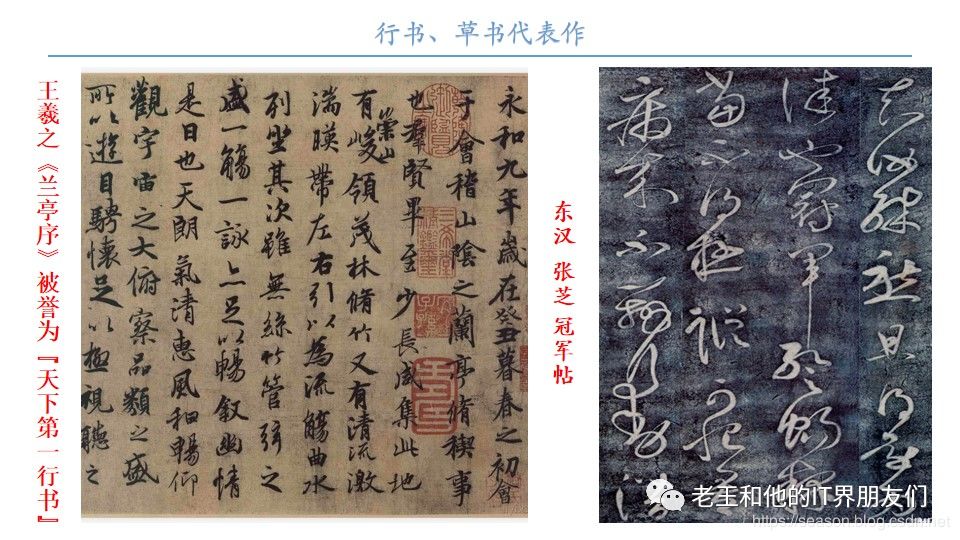 行书、草书代表作
王羲之《兰亭序》被誉为『天下第一行书』
永和九年歲在癸丑暮春之初會
于會稽山陰之蘭亭脩稧事
也羣賢畢至少長咸集此地
有崇山峻領茂林脩竹又有清流激
湍暎帶左右引以為流觴曲水
列坐其次雖無絲竹管弦之
盛一觴一詠亦足以暢敘幽情
是日也天朗氣清惠風和暢仰
觀宇宙之大俯察品類之盛
所以遊目騁懷足以極視聽之
东汉 张芝 冠军帖
知汝殊愁且得還為
佳也冠軍暫暢釋
當不得極蹤可恨吾
病來不辨行動潛
老王和他的IT界朋友们
https://season.blog.csdn.net